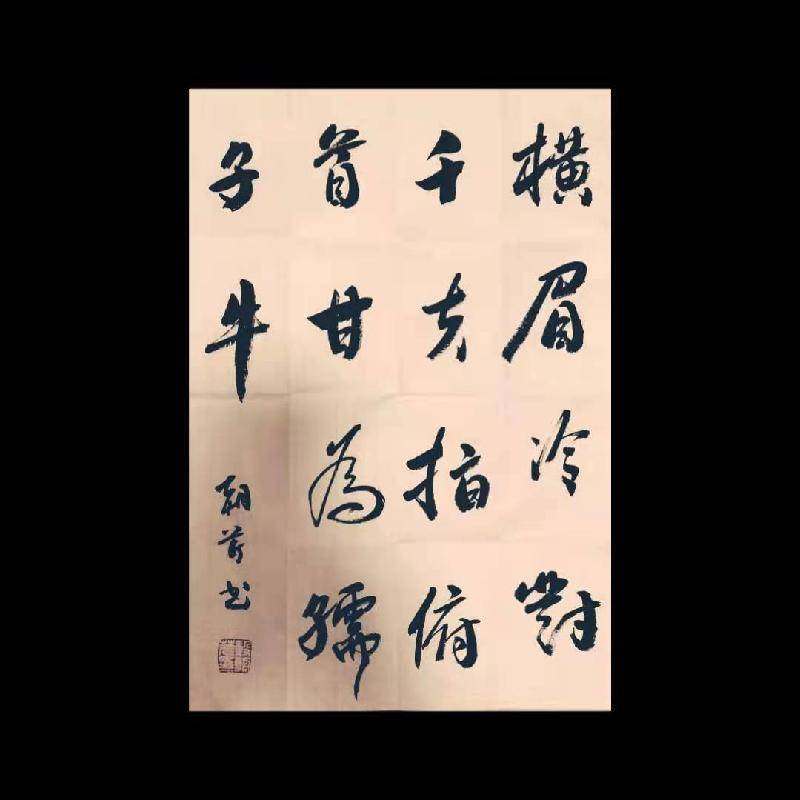 橫眉冷對
千夫指俯
首甘為孺
子牛
朝芳書